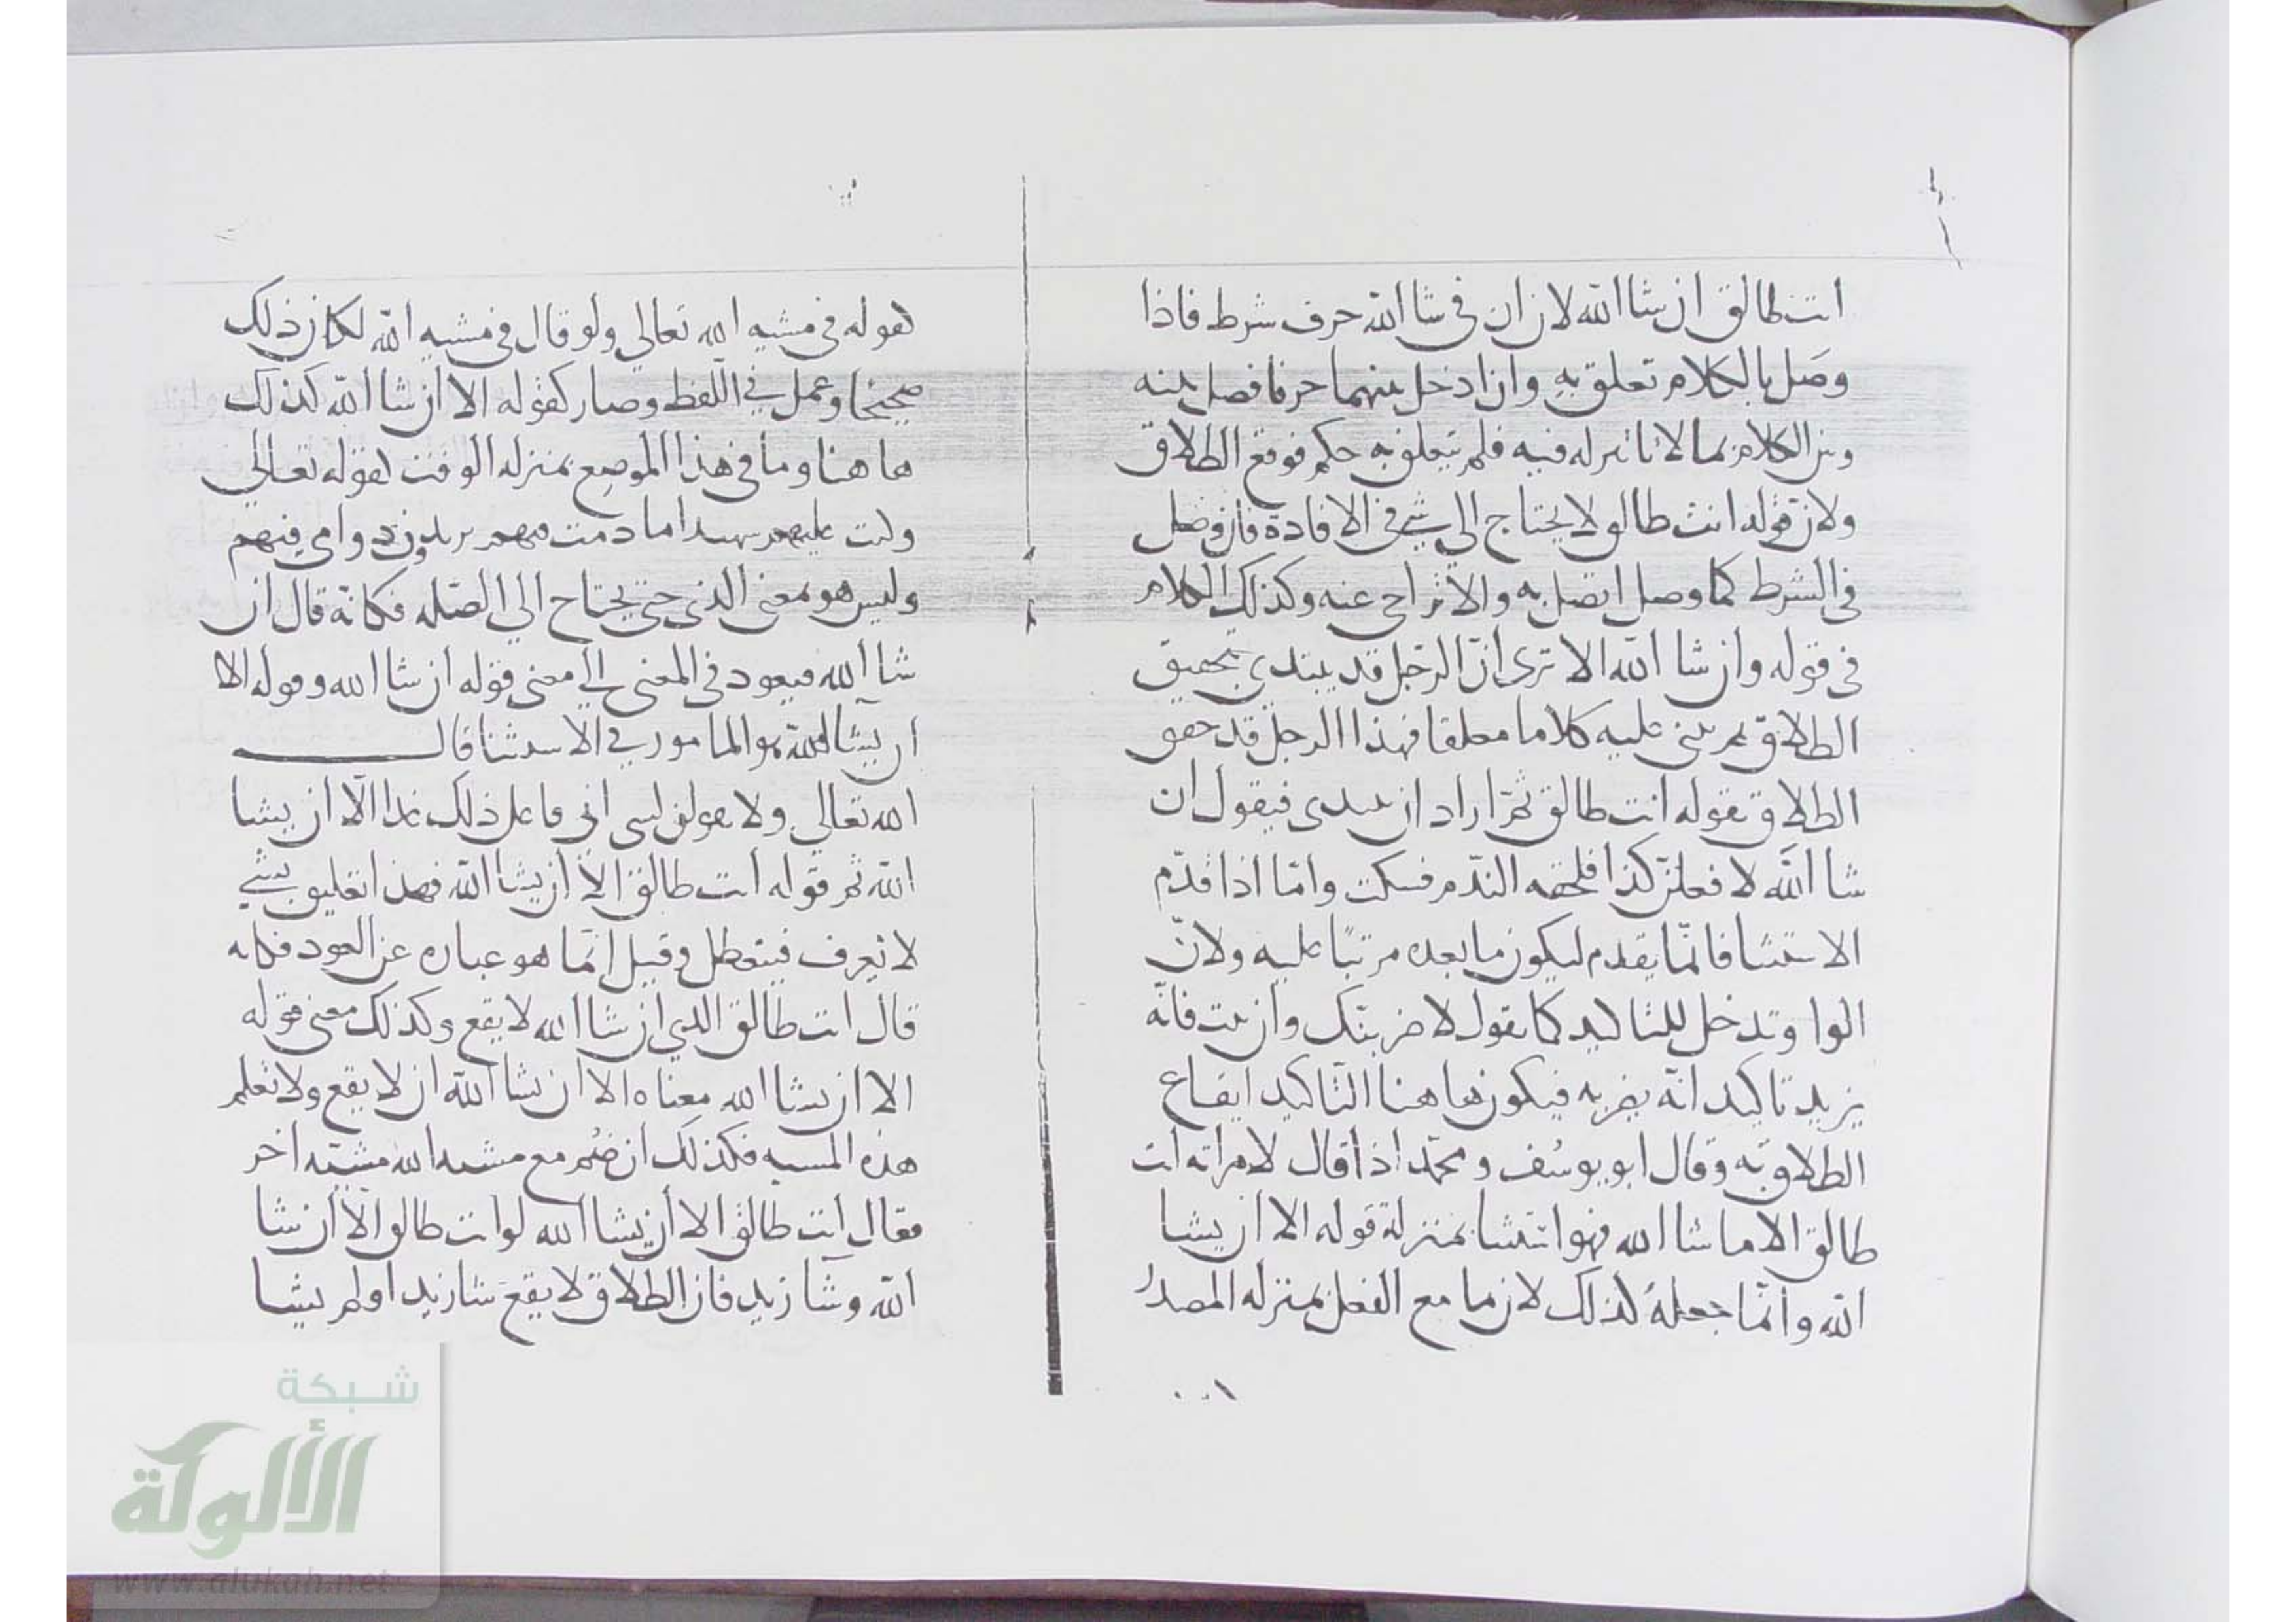 انت طالق ان شا الله لان ان في شا الله حرف شرط فاذا
وصل بالكلام تعلق به وان ادخل بينهما حرفا فصل بينه
وبين الكلام بما لا تاثير له فيه فلم يتعلق به حكم فوقع الطلاق
ولان قوله انت طالق لا يحتاج الي شي في الافادة فان وصل
في الشرط كما وصل اتصل به والا تراخي عنه وكذلك الكلام
في قوله وان شا الله الا تري ان الرجل قد يبتدي بتحقيق
الطلاق ثم يبني عليه كلاما معلقا فهذا الرجل قد حقق
الطلاق بقوله انت طالق ثم اراد ان يبتدي فيقول ان
شا الله لافعلن كذا فلحقه الندم فسكت وامّا اذا قدّم
الاستثنا فانّما يقدم ليكون ما بعده مرتبًا عليه ولانّ
الواو تدخل للتاكيد كما يقول لاضربنّك وان فانّه
يزيد تاكيد انّه يضربه فيكون ها هنا التاكيد ايقاع
الطلاق به وقال ابو يوسُف ومحمّد اذا قال لامراته انت
طالق الا ما شا الله فهو استثنا بمنزلة قوله الا ان يشا
الله وانّما جعلهُ كذلك لان ما مع الفعل بمنزله المصدرُ
كقوله في مشيه الله تعالي ولو قال في مشيه الله لكان ذلك
صحيحًا وعمل في اللفظ وصار كقوله الا ان شا الله كذلك
ها هنا وما في هذا الموضع بمنزله الوقت كقوله تعالي
وكنت عليهم شهيدا ما دمت فيهم يريدون دوامي فيهم
وليس هو بمعني الذي حتي يحتاج الي الصّله فكانه قال ان
شا الله فيعود في المعني الي معني قوله ان شا الله وقوله الا
ان يشا الله هو المامور في الاستثنا قال
الله تعالي ولا تقولن لشي اني فاعل ذلك غدا الّا ان يشا
الله ثم قوله انت طالق الا ان يشا الله فهذا تعليق بشي
لا يعرف فيتعطل وقيل انّما هو عباره عن العود فكانه
قال انت طالق الذي ان شا الله لا يقع وكذلك معني قوله
الا ان يشا الله معناه الا ان يشا الله ان لا يقع ولا تعلم
هذه المشيه فكذلك ان ضُم مع مشيه الله مشيّه اخر
فقال انت طالق الا ان يشا الله او انت طالق الّا ان يشا
الله وشا زيد فان الطلاق لا يقع شا زيد او لم يشا
شبكة
الألوكة
www.alukah.net